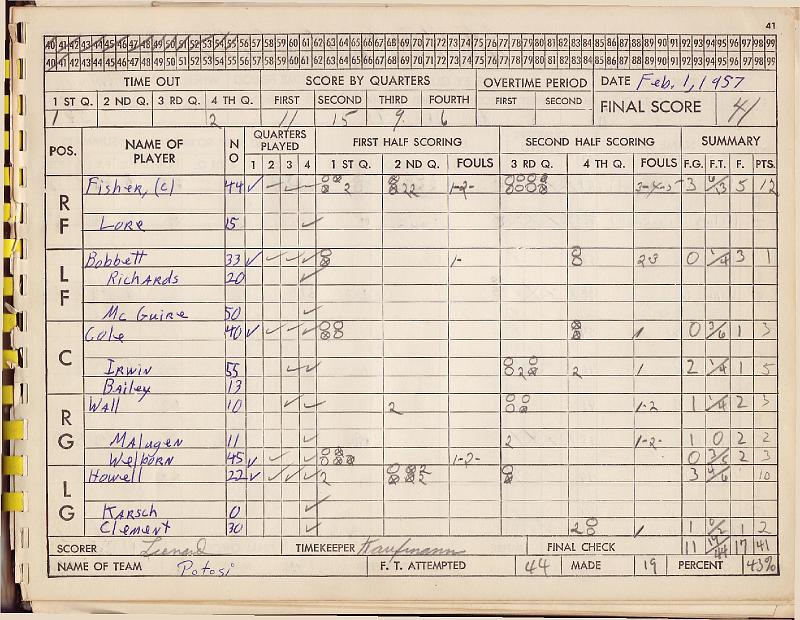 41
40 41 42 43 44 45 46 47 48 49 50 51 52 53 54 55 56 57 58 59 60 61 62 63 64 65 66 67 68 69 70 71 72 73 74 75 76 77 78 79 80 81 82 83 84 85 86 87 88 89 90 91 92 93 94 95 96 97 98 99
40 41 42 43 44 45 46 47 48 49 50 51 52 53 54 55 56 57 58 59 60 61 62 63 64 65 66 67 68 69 70 71 72 73 74 75 76 77 78 79 80 81 82 83 84 85 86 87 88 89 90 91 92 93 94 95 96 97 98 99
TIME OUT SCORE BY QUARTERS OVERTIME PERIOD DATE Feb. 1, 1957
1 ST Q. 2 ND Q. 3 RD Q. 4 TH Q. FIRST SECOND THIRD FOURTH FIRST SECOND FINAL SCORE 41
1 2 11 15 9 6
POS. NAME OF PLAYER NO QUARTERS PLAYED FIRST HALF SCORING SECOND HALF SCORING SUMMARY
1 2 3 4 1 ST Q. 2 ND Q. FOULS 3 RD Q. 4 TH Q. FOULS F.G. F.T. F. PTS.
RF Fisher, (c) 44 2 22 1-2- 3-4-5 3 6/13 5 12
Lore 15
LF Bobbett 33 1- 2-3 0 1/4 3 1
Richards 20
Mc Guire 50
C Cole 40 1 0 3/6 1 3
Irwin 55 2 2 1 2 1/4 1 5
Bailey 13
RG Wall 10 2 1-2 1 1/4 2 3
Malugen 11 2 1-2- 1 0 2 2
Welborn 45 1-2- 0 3/5 2 3
LG Howell 22 2 2 2 3 4/6 10
Karsch 0
Clement 30 2 1 1 0/2 1 2
SCORER Lienard TIMEKEEPER Kaufmann FINAL CHECK 11 19/44 17 41
NAME OF TEAM Potosi F. T. ATTEMPTED 44 MADE 19 PERCENT 43%